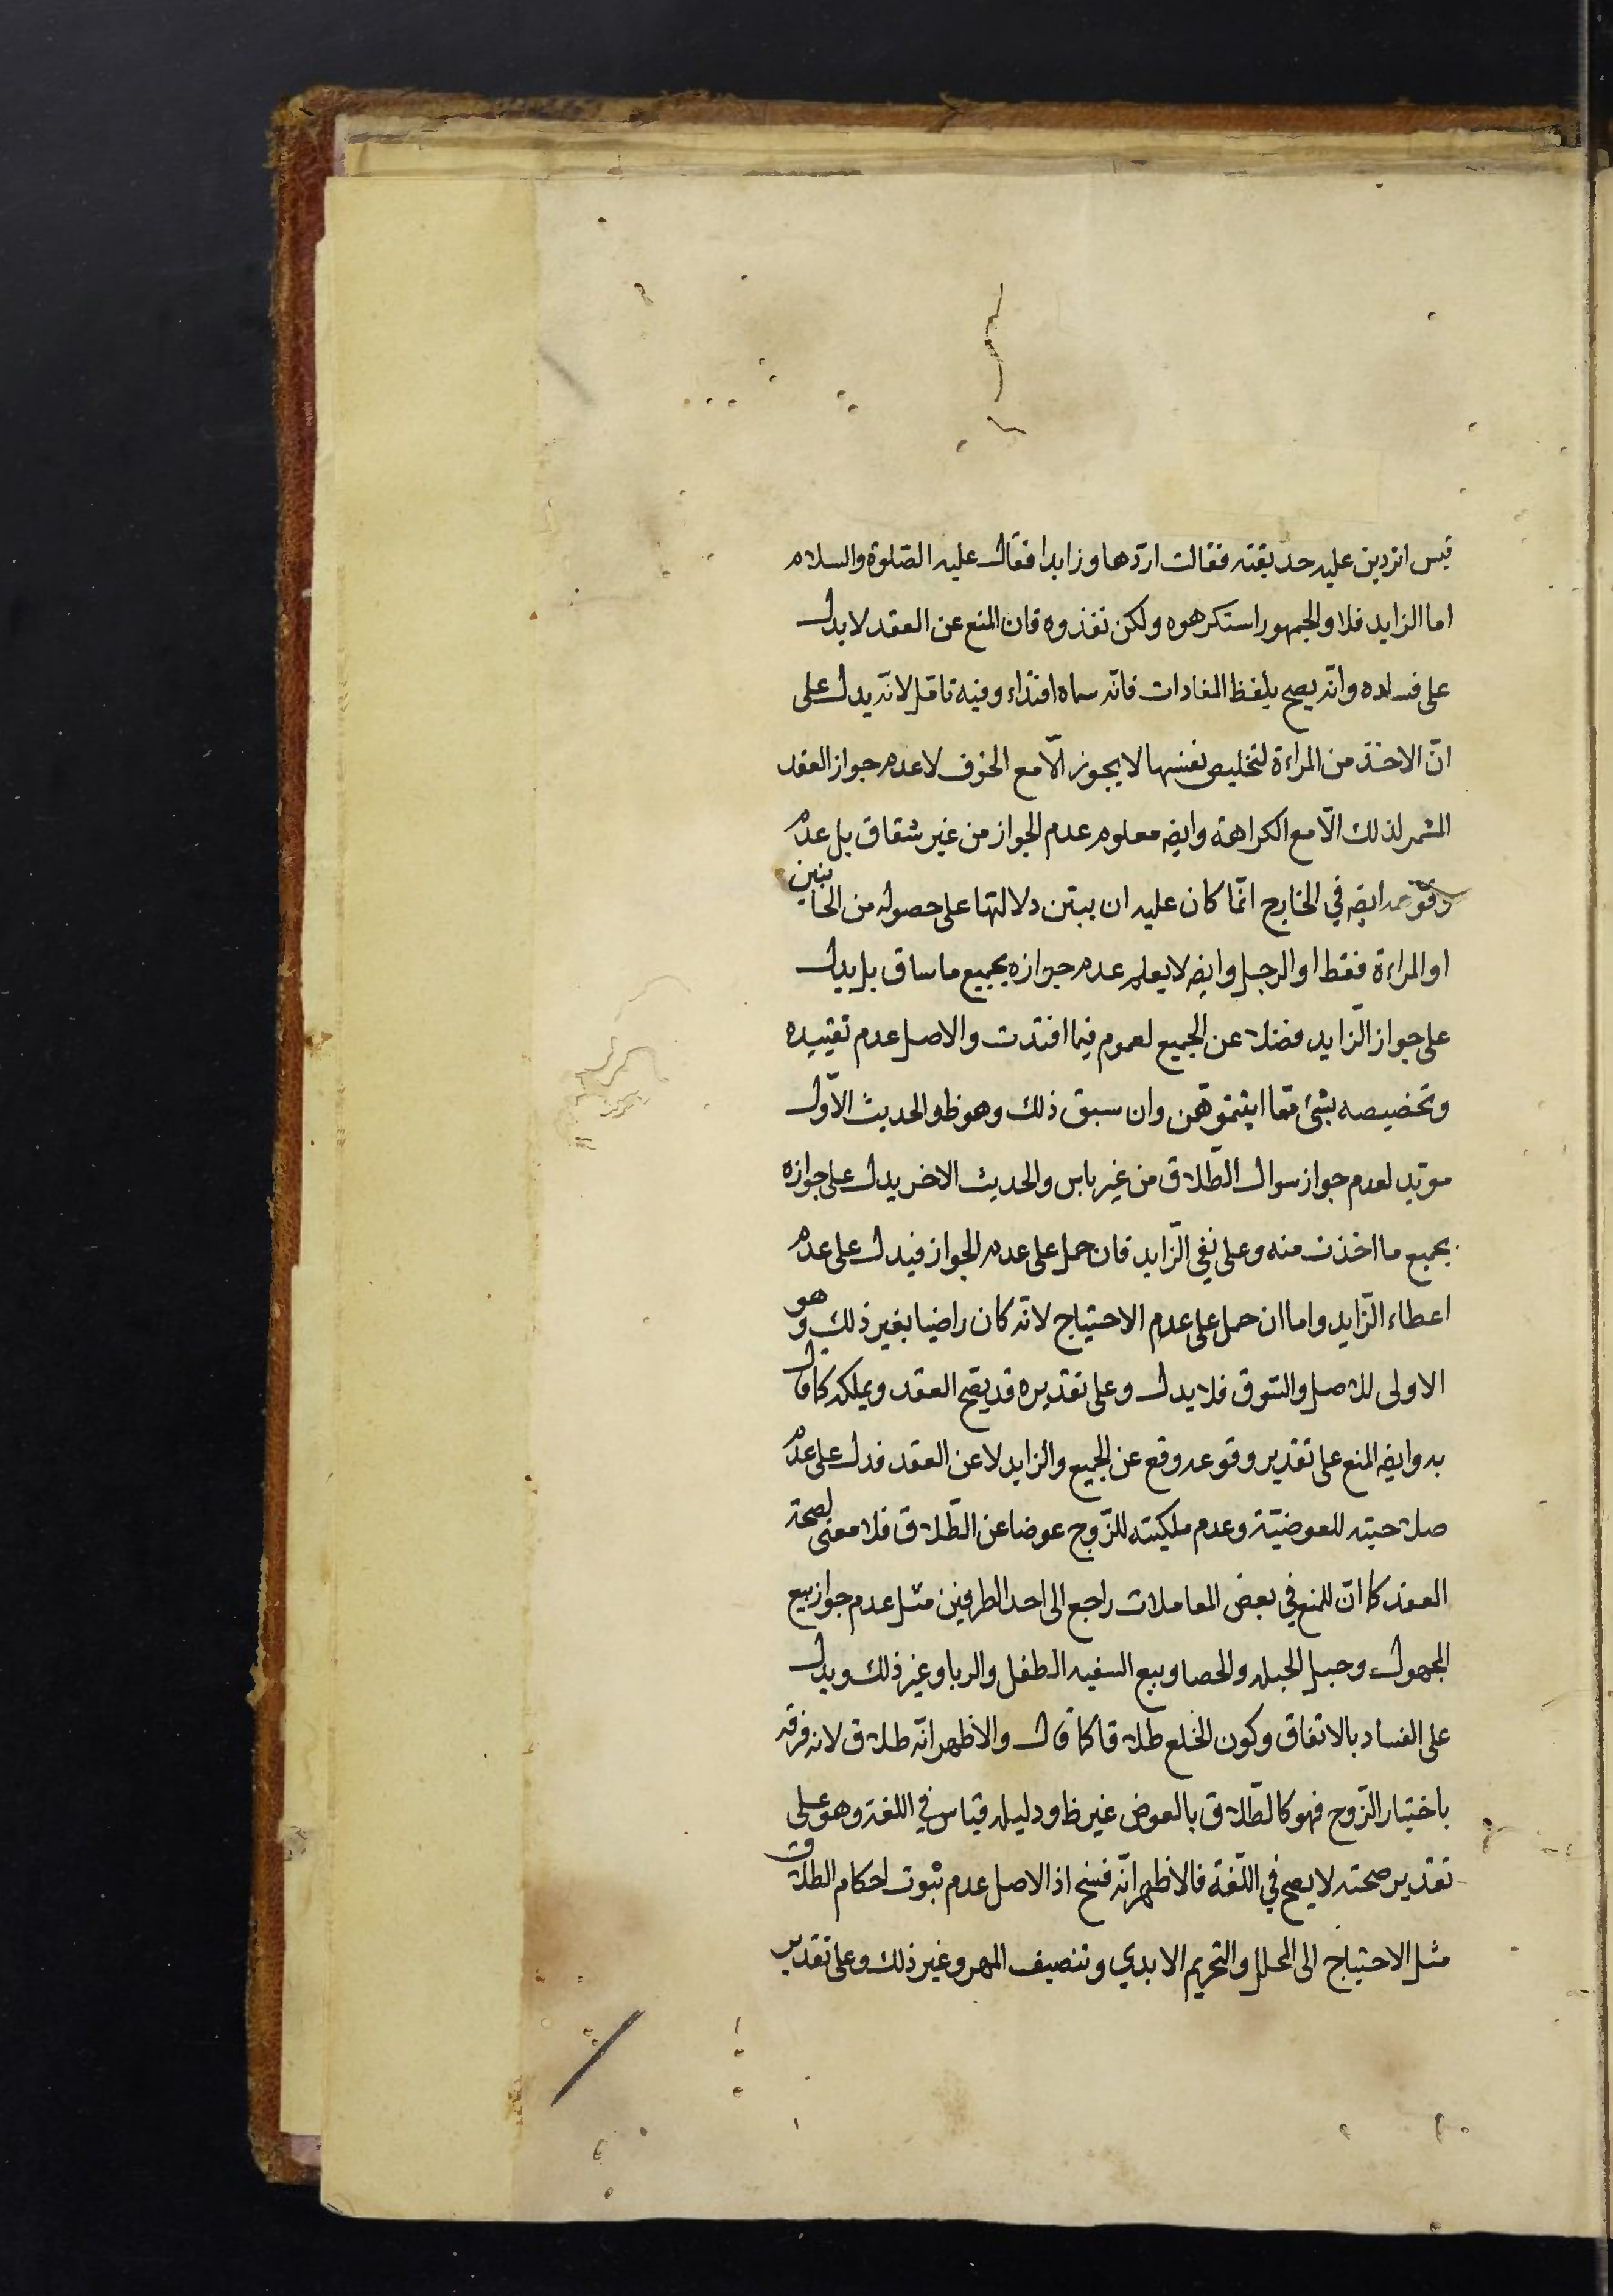 قيس اتردين عليه حديقته فقالت اردّها وزايدا فقال عليه الصّلوة والسلام
اما الزايد فلا والجمهور استكرهوه ولكن نفذوه فان المنع عن العقد لا يدل
على فساده وانّه يصح بلفظ المفادات فانّه سماه افتداء وفيه تامّل لانّه يدل على
انّ الاخذ من المراءة لتخليص نفسها لا يجوز الّا مع الخوف لا عدم جواز العقد
المثمر لذلك الّا مع الكراهة وايضه معلوم عدم الجواز من غير شقاق بل عدم
وقوعه ايضه في الخارج انّما كان عليه ان يبيّن دلالتها على حصوله من الجانبين
او المراءة فقط او الرجل وايضه لا يعلم عدم جوازه بجميع ما ساق بل يدل
على جواز الزّايد فضلا عن الجميع لعموم فيما افتدت والاصل عدم تقييده
وتخصيصه بشئ ممّا اتيتموهن وان سبق ذلك وهو ظ والحديث الاوّل
مويّد لعدم جواز سوال الطّلاق من غير باس والحديث الاخر يدل على جوازه
بجميع ما اخذت منه وعلى نفي الزّايد فان حمل على عدم الجواز فيدل على عدم
اعطاء الزّايد واما ان حمل على عدم الاحتياج لانّه كان راضيا بغير ذلك وهو
الاولى للاصل والسّوق فلا يدل وعلى تقديره قد يقع العقد ويملكه كما قال
به وايضه المنع على تقدير وقوعه وقع عن الجميع والزايد لا عن العقد فدل على عدم
صلاحيته للعوضيّة وعدم ملكيته للزّوج عوضا عن الطّلاق فلا معنى لصحة
العقد كما انّ المنع في بعض المعاملات راجع الى احد الطرفين مثل عدم جواز بيع
المجهول وحبل الحبله والحصا وبيع السفيه الطفل والربا وغير ذلك ويدل
على الفساد بالاتفاق وكون الخلع طلاقا كما قال والاظهر انّه طلاق لانه فرقه
باختيار الزّوج فهو كالطّلاق بالعوض غير ظ ودليله قياس في اللغة وهو على
تقدير صحته لا يصح في اللّغة فالاظهر انّه فسخ اذ الاصل عدم ثبوت احكام الطلاق
مثل الاحتياج الى المحلل والتحريم الابدي وتنصيف المهر وغير ذلك وعلى تقدير